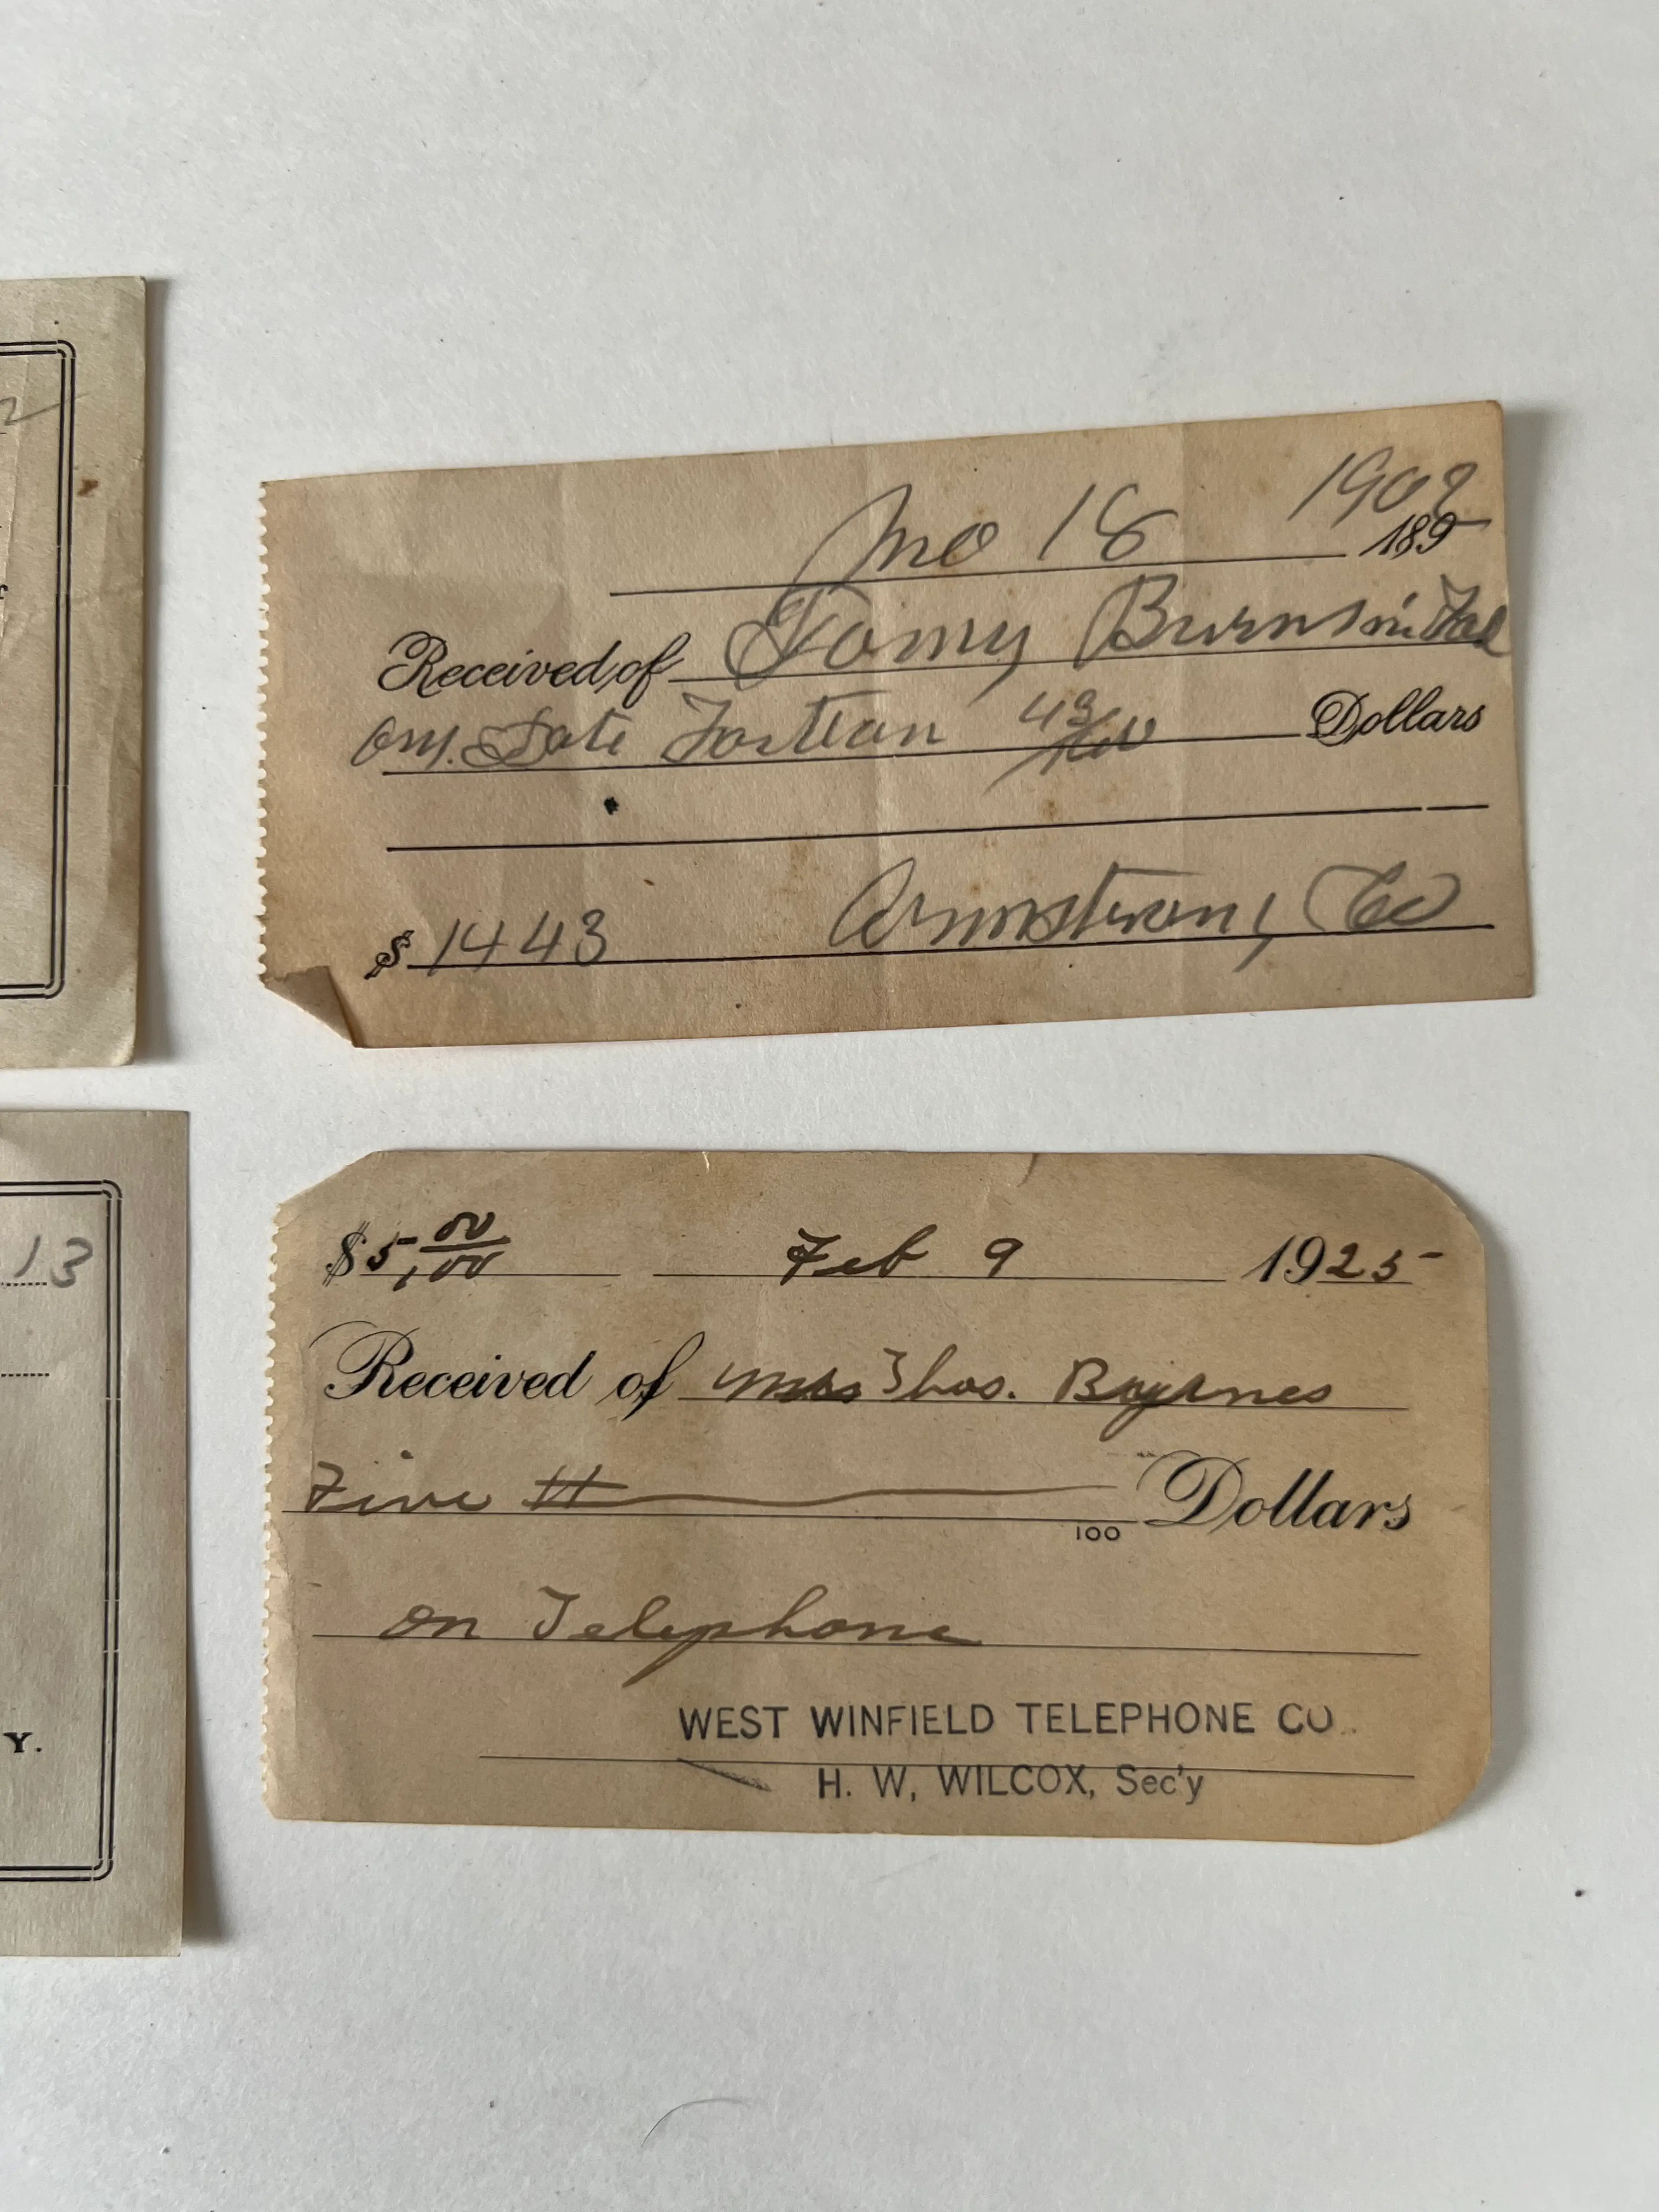 18 1909
189
Received of Tomy Burns in Full
on Date Forteen 43/100 Dollars
$ 1443 Armstrong Co
2
13
Y.
$5,00/00 Feb 9 1925
Received of Mrs Thos. Byrnes
Five 100 Dollars
on Telephone
WEST WINFIELD TELEPHONE CO.
H. W. WILCOX, Sec'y